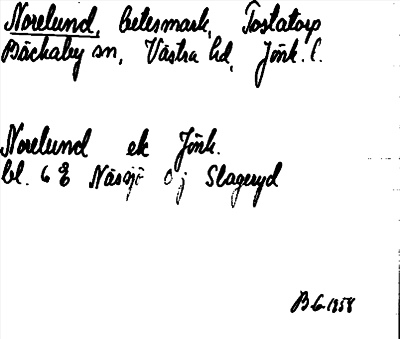 Norelund, betesmark, Tostatorp
Bäckaby sn, Västra hd, Jönk. l.
Norelund ek Jönk.
bl. 6 Nässjö Oj Slageryd
BG 1958